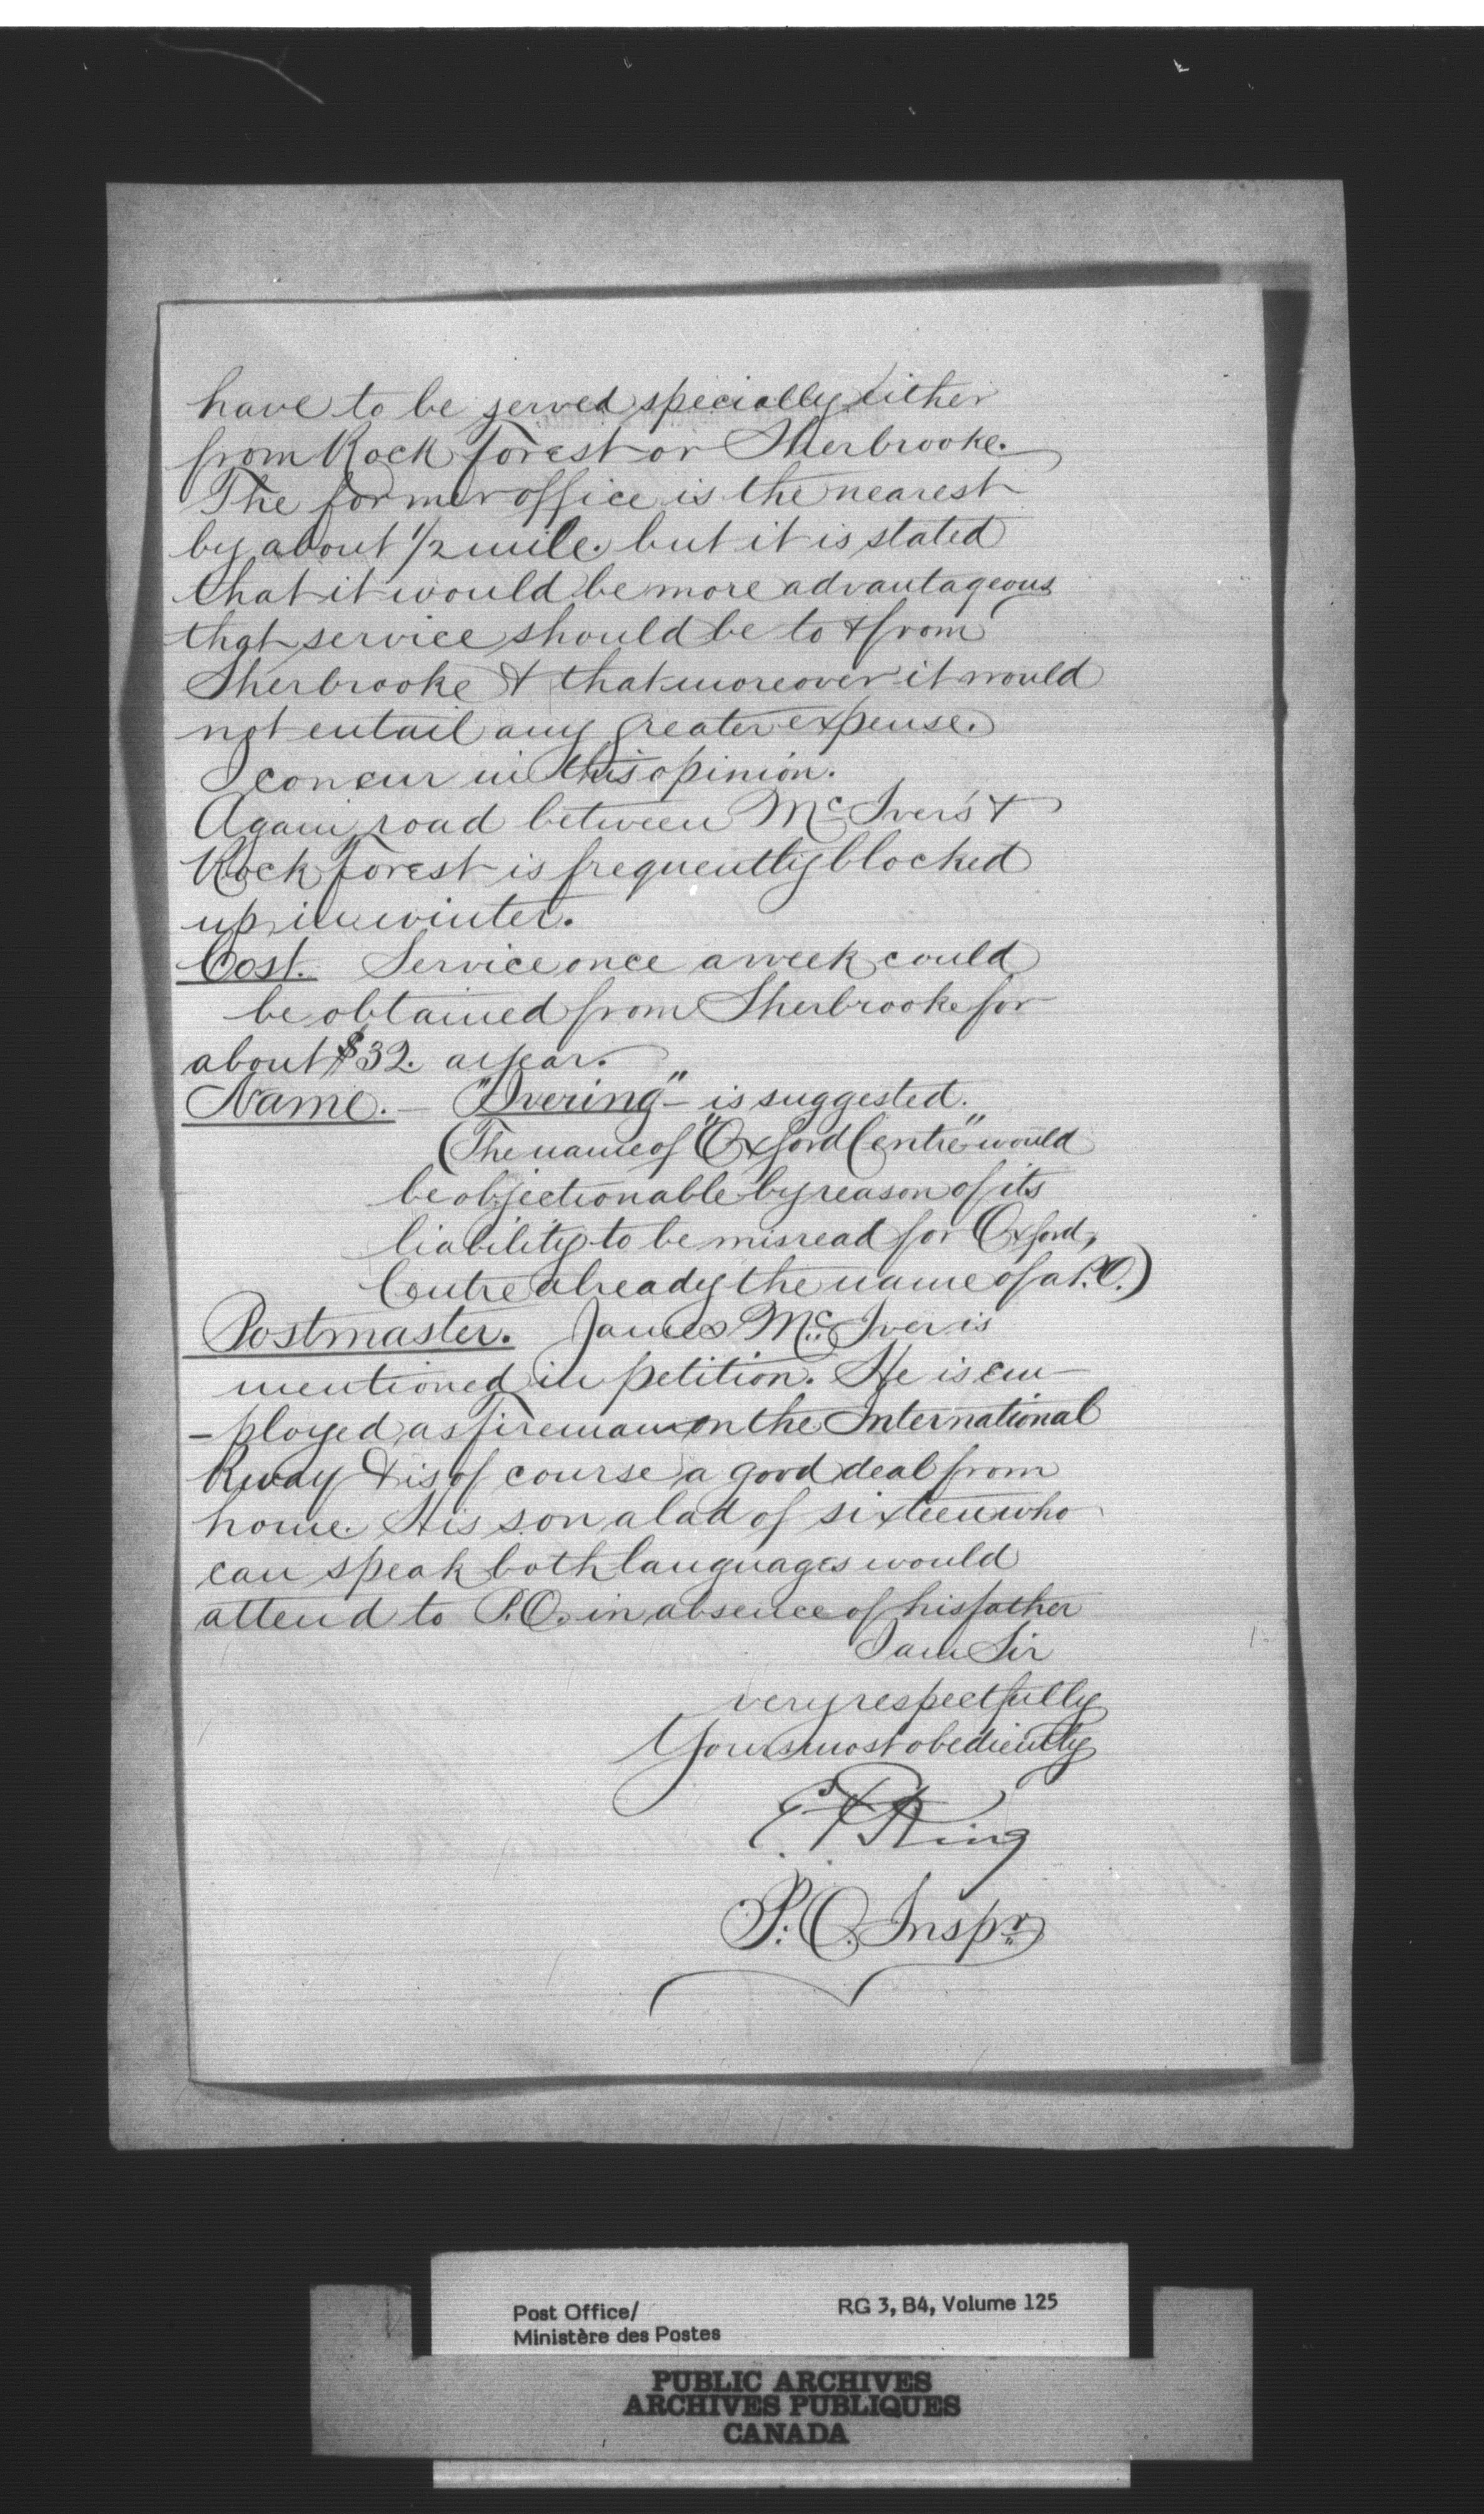 have to be served specially either
from Rock Forest or Sherbrooke.
The former office is the nearest
by about 1/2 mile. but it is stated
that it would be more advantageous
that service should be to & from
Sherbrooke & that moreover it would
not entail any greater expense.
I concur in this opinion.
Again, road between McIver's &
Rock Forest is frequently blocked
up in winter.
Cost. Service once a week could
be obtained from Sherbrooke for
about $32. a year.
Name. — "Ivering" — is suggested.
(The name of "Oxford Centre" would
be objectionable by reason of its
liability to be misread for Oxford,
Centre already the name of a P.O.)
Postmaster. James McIver is
mentioned in petition. He is em-
-ployed as fireman on the International
Rway & is of course a good deal from
home. His son a lad of sixteen who
can speak both languages would
attend to P.O. in absence of his father
I am Sir
very respectfully
Yours most obediently
King
P.O. Inspr
Post Office/
Ministère des Postes
RG 3, B4, Volume 125
PUBLIC ARCHIVES
ARCHIVES PUBLIQUES
CANADA